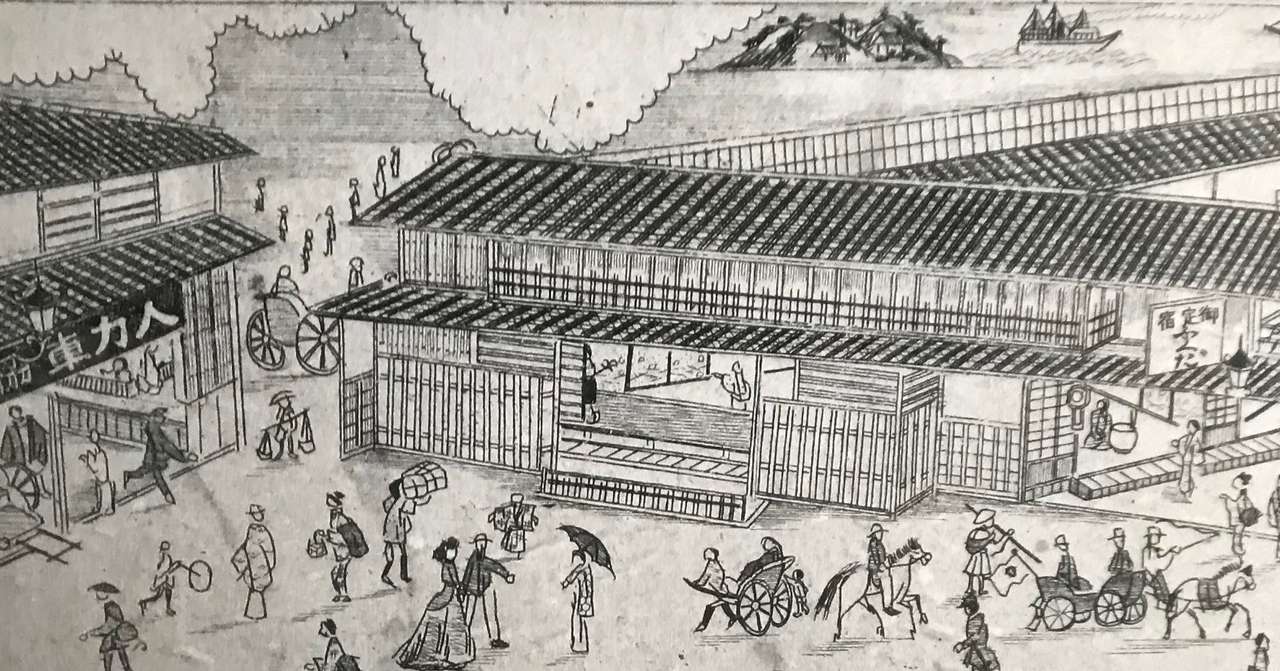 人力車
御定宿